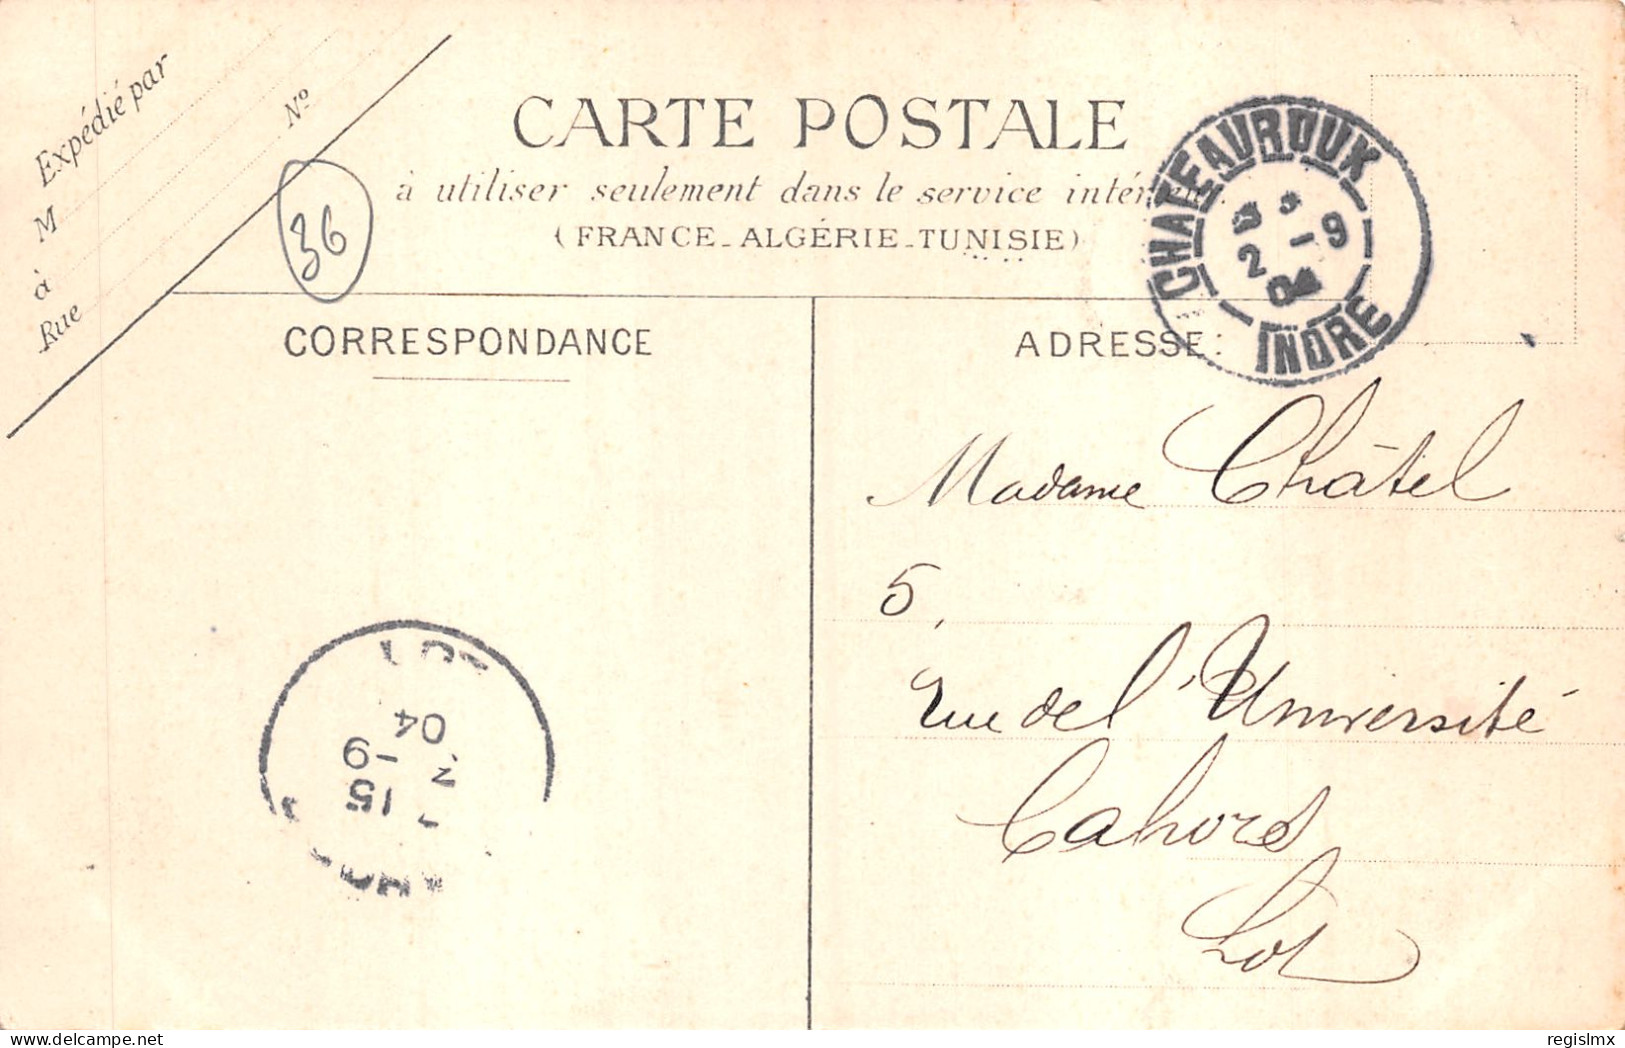 Expédié par
M
à
Rue
Nº
36
CARTE POSTALE
à utiliser seulement dans le service intérieur.
(FRANCE-ALGÉRIE-TUNISIE)
CHATEAUROUX
2 -9
04
INDRE
CORRESPONDANCE
ADRESSE:
Madame Châtel
5,
rue de l'Université
Cahors
Lot
LOT
04
-9
15
regislmx